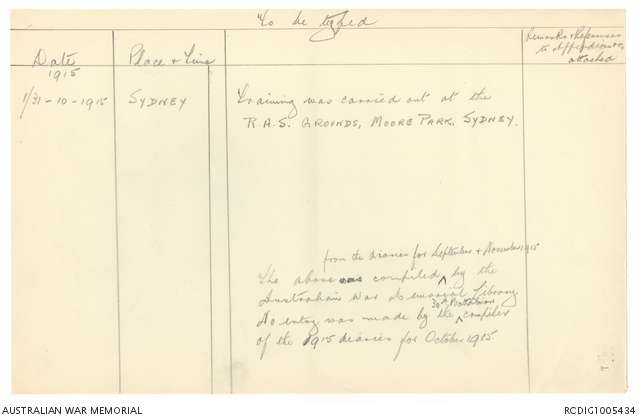 To be typed
Date
1915
Place & Time
Remarks & References
to Appendices
attached
1/31-10-1915
SYDNEY
Training was carried out at the
R.A.S. GROUNDS, MOORE PARK, SYDNEY.
from the diaries for September & November 1915
The above was compiled ^ by the
Australian War Memorial Library
30th Battalion
No entry was made by the ^ compiler
of the 1915 diaries for October 1915.
AUSTRALIAN WAR MEMORIAL
RCDIG1005434